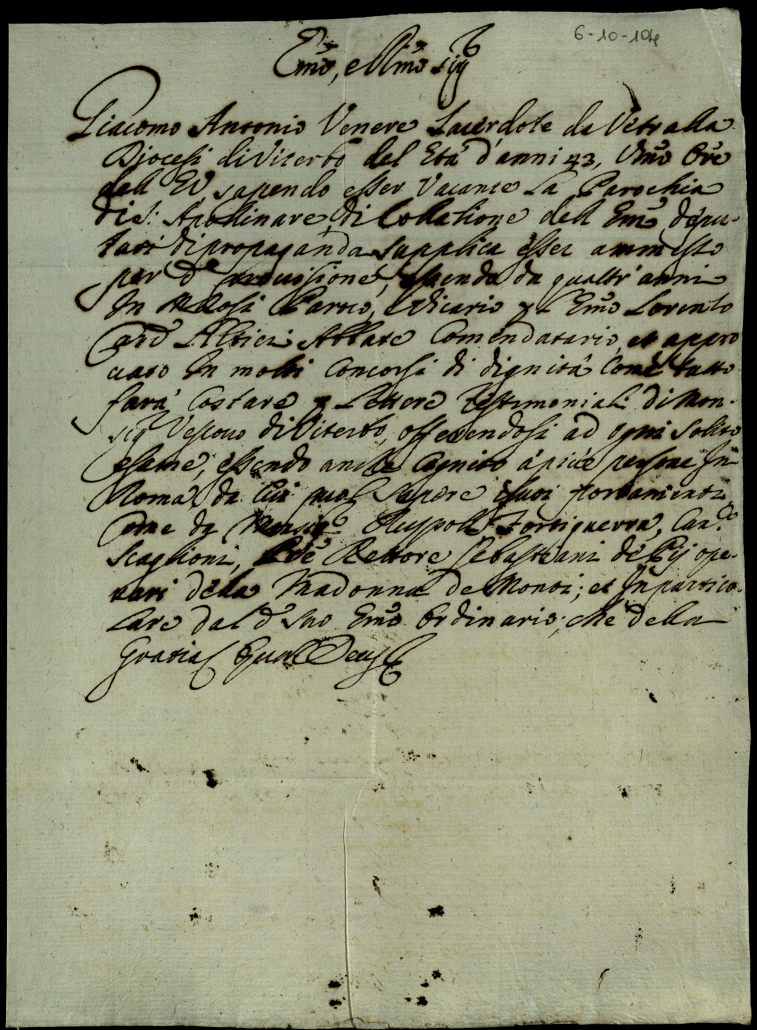 6-10-104
Em̃o, e Rm̃o Sig
Giacomo Antonio Venere Sacerdote da Vetralla
Diocesi di Viterbo del Età d'anni 43, Um̃o Ore
dell EV sapendo esser Vacante La Parochia
di S: Apollinare, di Collatione dell Em̃i depu-
tati di propaganda supplica esser ammesso
per da provisione, essendo da qualtr'anni
In Parroco, e Vicario p l'Emo Lorento
Card Altieri Abbate Comendatario, et appro
vato In molti Concorsi di dignità Come tutto
farà Costare p Lettere Testimoniali di Mon-
sig Vescovo di Viterbo, offerendosi ad ogni solito
esame, essendo anche Cognito à più persone In
Roma, da cui puol sapere i suoi portamenti
Come da Monsigr Ruspoli Fortiguerra, Can.
Scaglioni, Rettore Sebastiani de Pij ope-
rari della Madonna de Monti; et In partico-
lare dal do suo Emo Ordinario; che della
Gratia Quam Deus